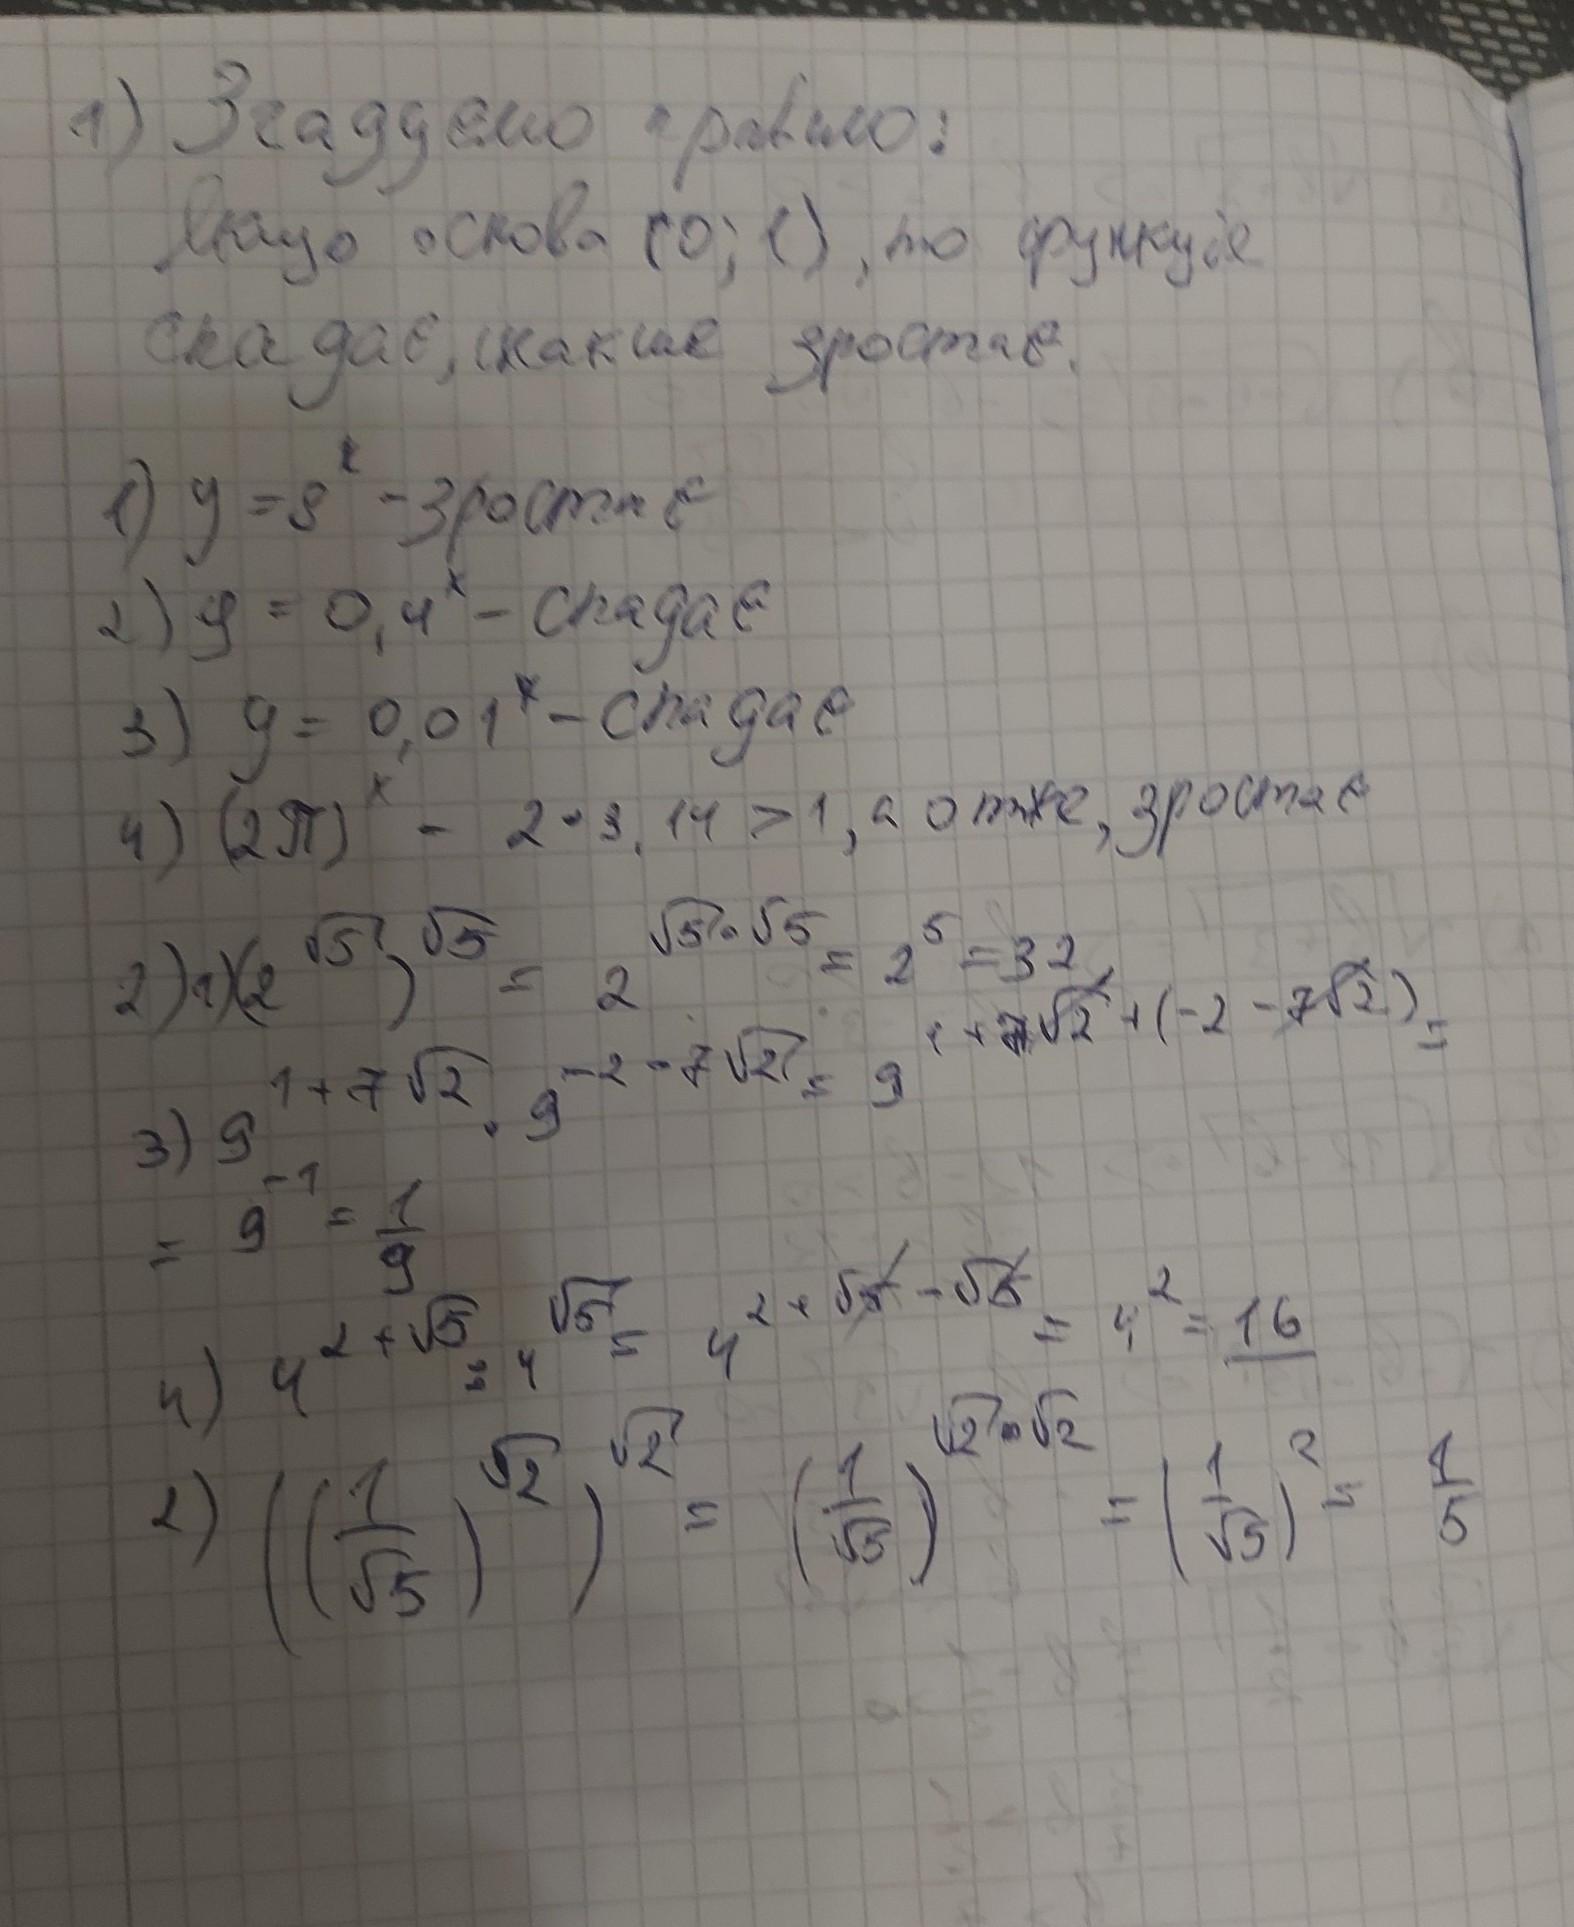 1) Згадуємо правило:
Якщо основа (0; 1), то функція
спадає, інакше зростає.
1) y = 8^x - зростає
2) y = 0,4^x - спадає
3) y = 0,01^x - спадає
4) (2π)^x - 2 · 3,14 > 1, а отже, зростає
2) 1) (2^√5)^√5 = 2^(√5·√5) = 2^5 = 32
3) 9^(1+7√2) · 9^(-2-7√2) = 9^(1+7√2+(-2-7√2)) =
= 9^(-1) = 1/9
4) 4^(2+√5) : 4^√5 = 4^(2+√5-√5) = 4^2 = 16
2) ((1/√5)^√2)^√2 = (1/√5)^(√2·√2) = (1/√5)^2 = 1/5